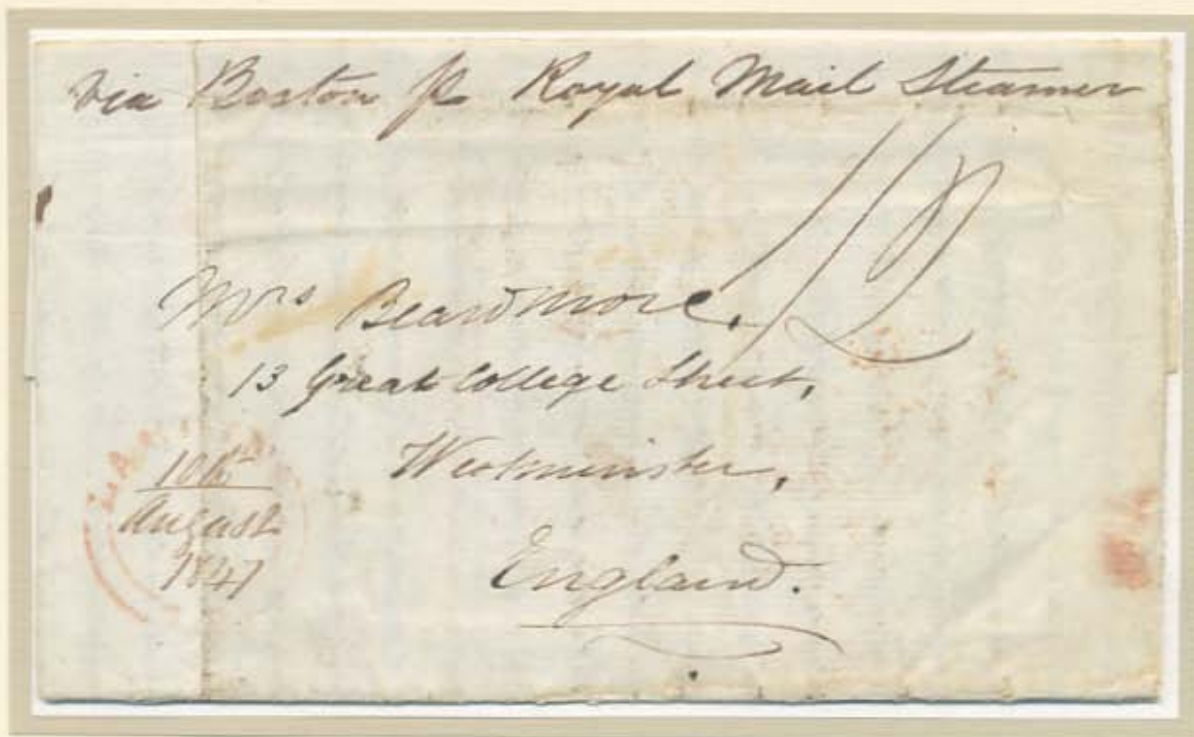 Via Boston p Royal Mail Steamer
1/2
Mrs Beardmore,
13 Great College Street,
Westminster,
England.
10th
August
1847